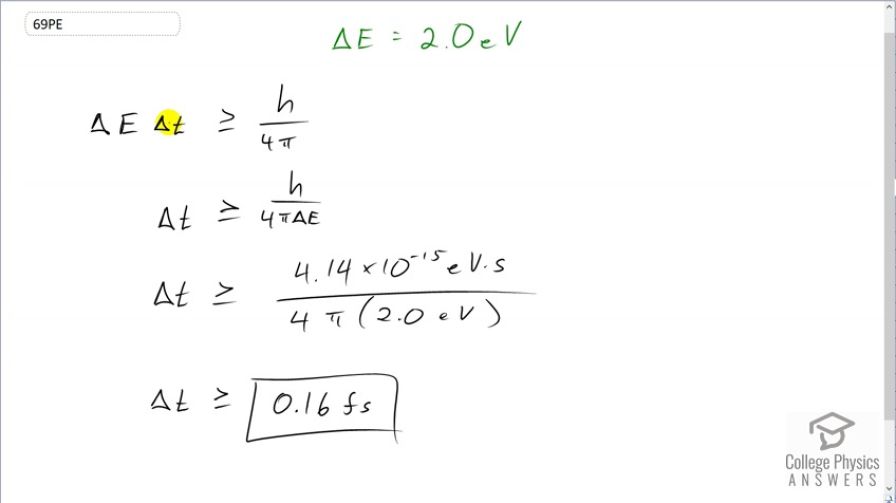 69PE
ΔE = 2.0 eV
ΔE Δt ≥ h/4π
Δt ≥ h/4πΔE
Δt ≥ 4.14×10⁻¹⁵ eV·s / 4π(2.0 eV)
Δt ≥ 0.16 fs
College Physics
ANSWERS